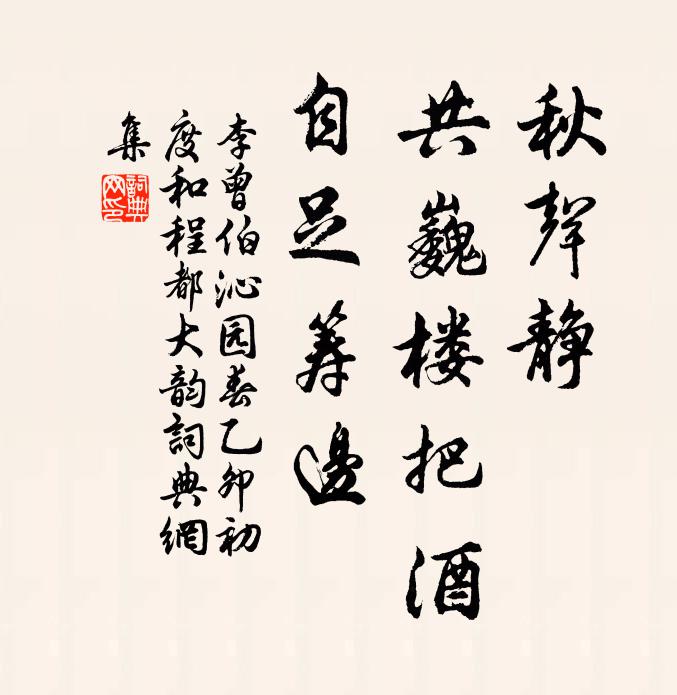 秋聲静
共巍楼把酒
自足筹邊
李曾伯沁园春乙卯初
度和程都大韵詞典網
集
詞典網印